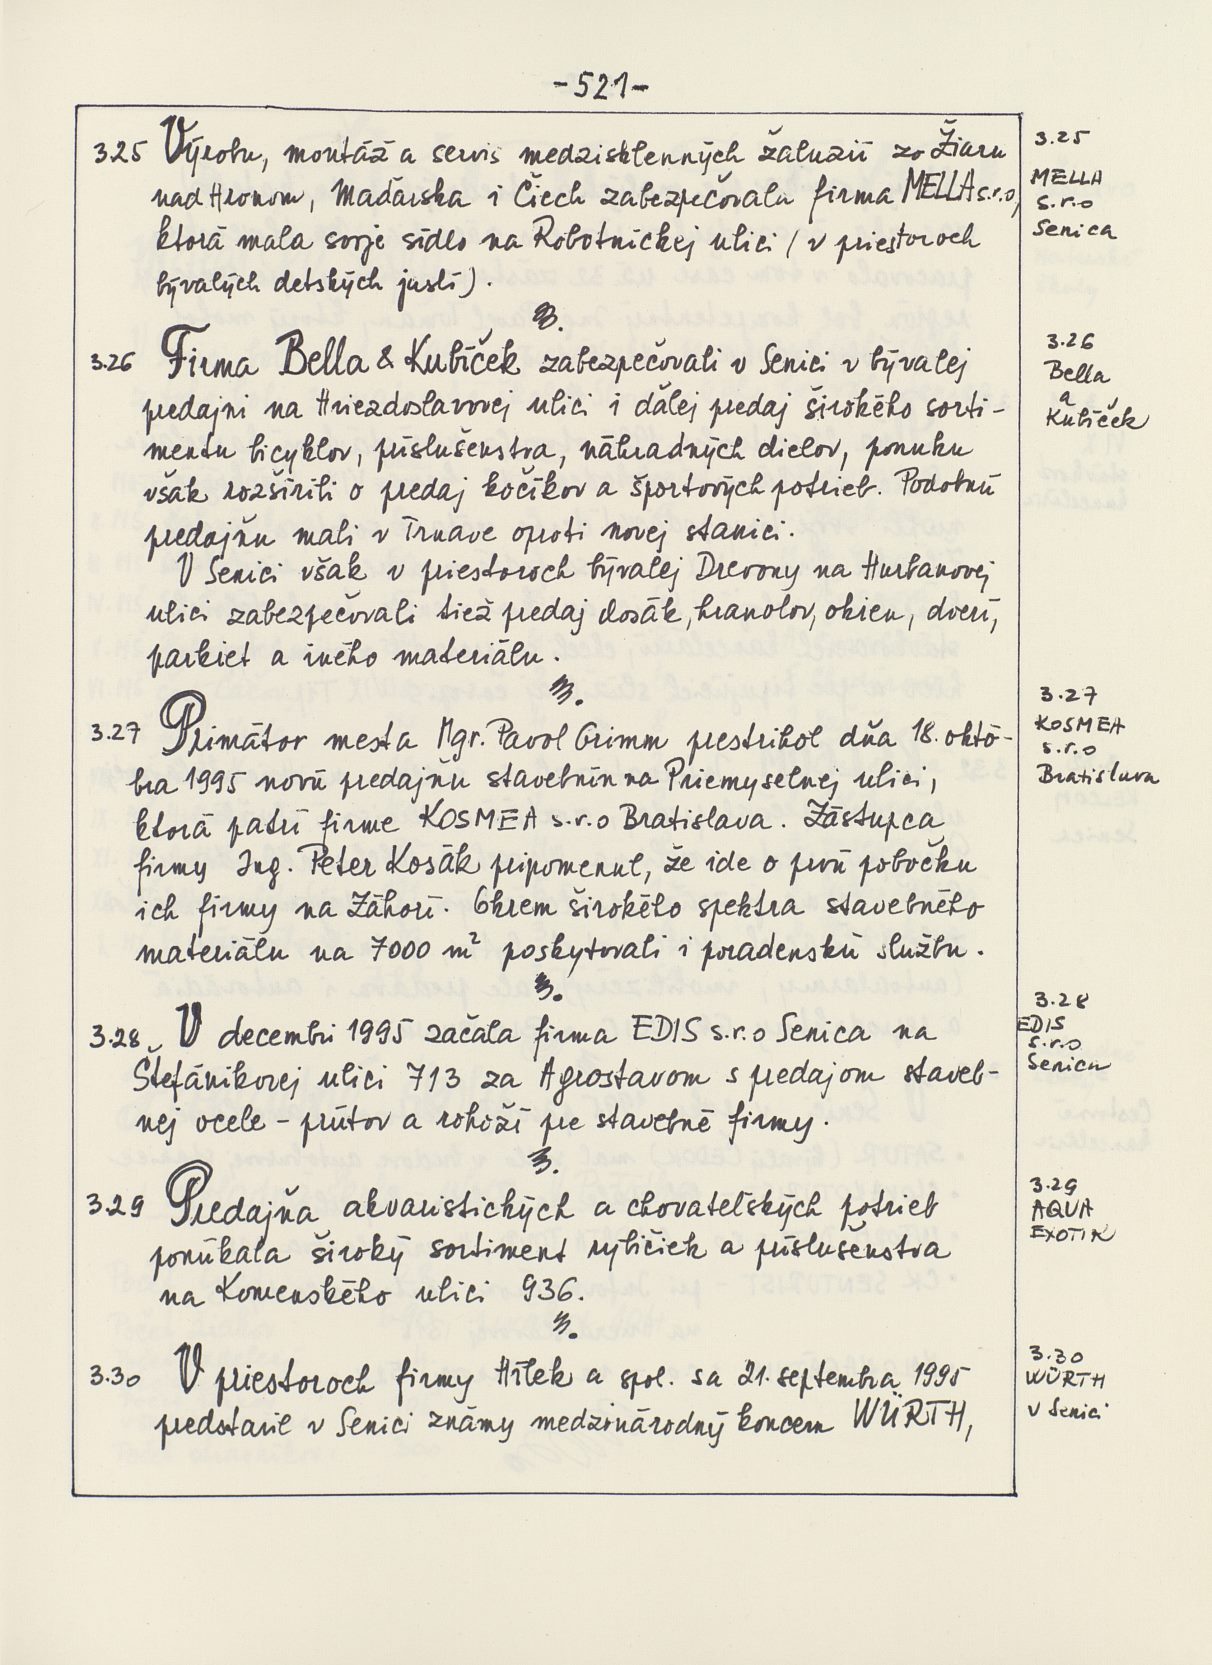 -521-
3.25 Výrobu, montáž a servis medzisklenných žaluzií zo Žiaru
nad Hronom, Maďarska i Čiech zabezpečovala firma MELLA s.r.o,
ktorá mala svoje sídlo na Robotníckej ulici (v priestoroch
bývalých detských jaslí).
3.26 Firma Bella & Kubíček zabezpečovali v Senici v bývalej
predajni na Hviezdoslavovej ulici i ďalej predaj širokého sorti-
mentu bicyklov, príslušenstva, náhradných dielov, ponuku
však rozšírili o predaj kočíkov a športových potrieb. Podobnú
predajňu mali v Trnave oproti novej stanici.
V Senici však v priestoroch bývalej Drevony na Hurbanovej
ulici zabezpečovali tiež predaj dosák, hranolov, okien, dverí,
parkiet a iného materiálu.
3.27 Primátor mesta Mgr. Pavol Grimm prestrihol dňa 18. októ-
bra 1995 novú predajňu stavebnín na Priemyselnej ulici,
ktorá patrí firme KOSMEA s.r.o Bratislava. Zástupca
firmy Ing. Peter Kosák pripomenul, že ide o prvú pobočku
ich firmy na Záhorí. Okrem širokého spektra stavebného
materiálu na 7000 m² poskytovali i poradenskú službu.
3.28 V decembri 1995 začala firma EDIS s.r.o Senica na
Štefánikovej ulici 713 za Agrostavom s predajom staveb-
nej ocele - prútov a rohoží pre stavebné firmy.
3.29 Predajňa akvaristických a chovateľských potrieb
ponúkala široký sortiment rybičiek a príslušenstva
na Komenského ulici 936.
3.30 V priestoroch firmy Hílek a spol. sa 21. septembra 1995
predstavil v Senici známy medzinárodný koncern WÜRTH,
3.25
MELLA
s.r.o
Senica
3.26
Bella
a
Kubíček
3.27
KOSMEA
s.r.o
Bratislava
3.28
EDIS
s.r.o
Senica
3.29
AQUA
EXOTIK
3.30
WÜRTH
v Senici